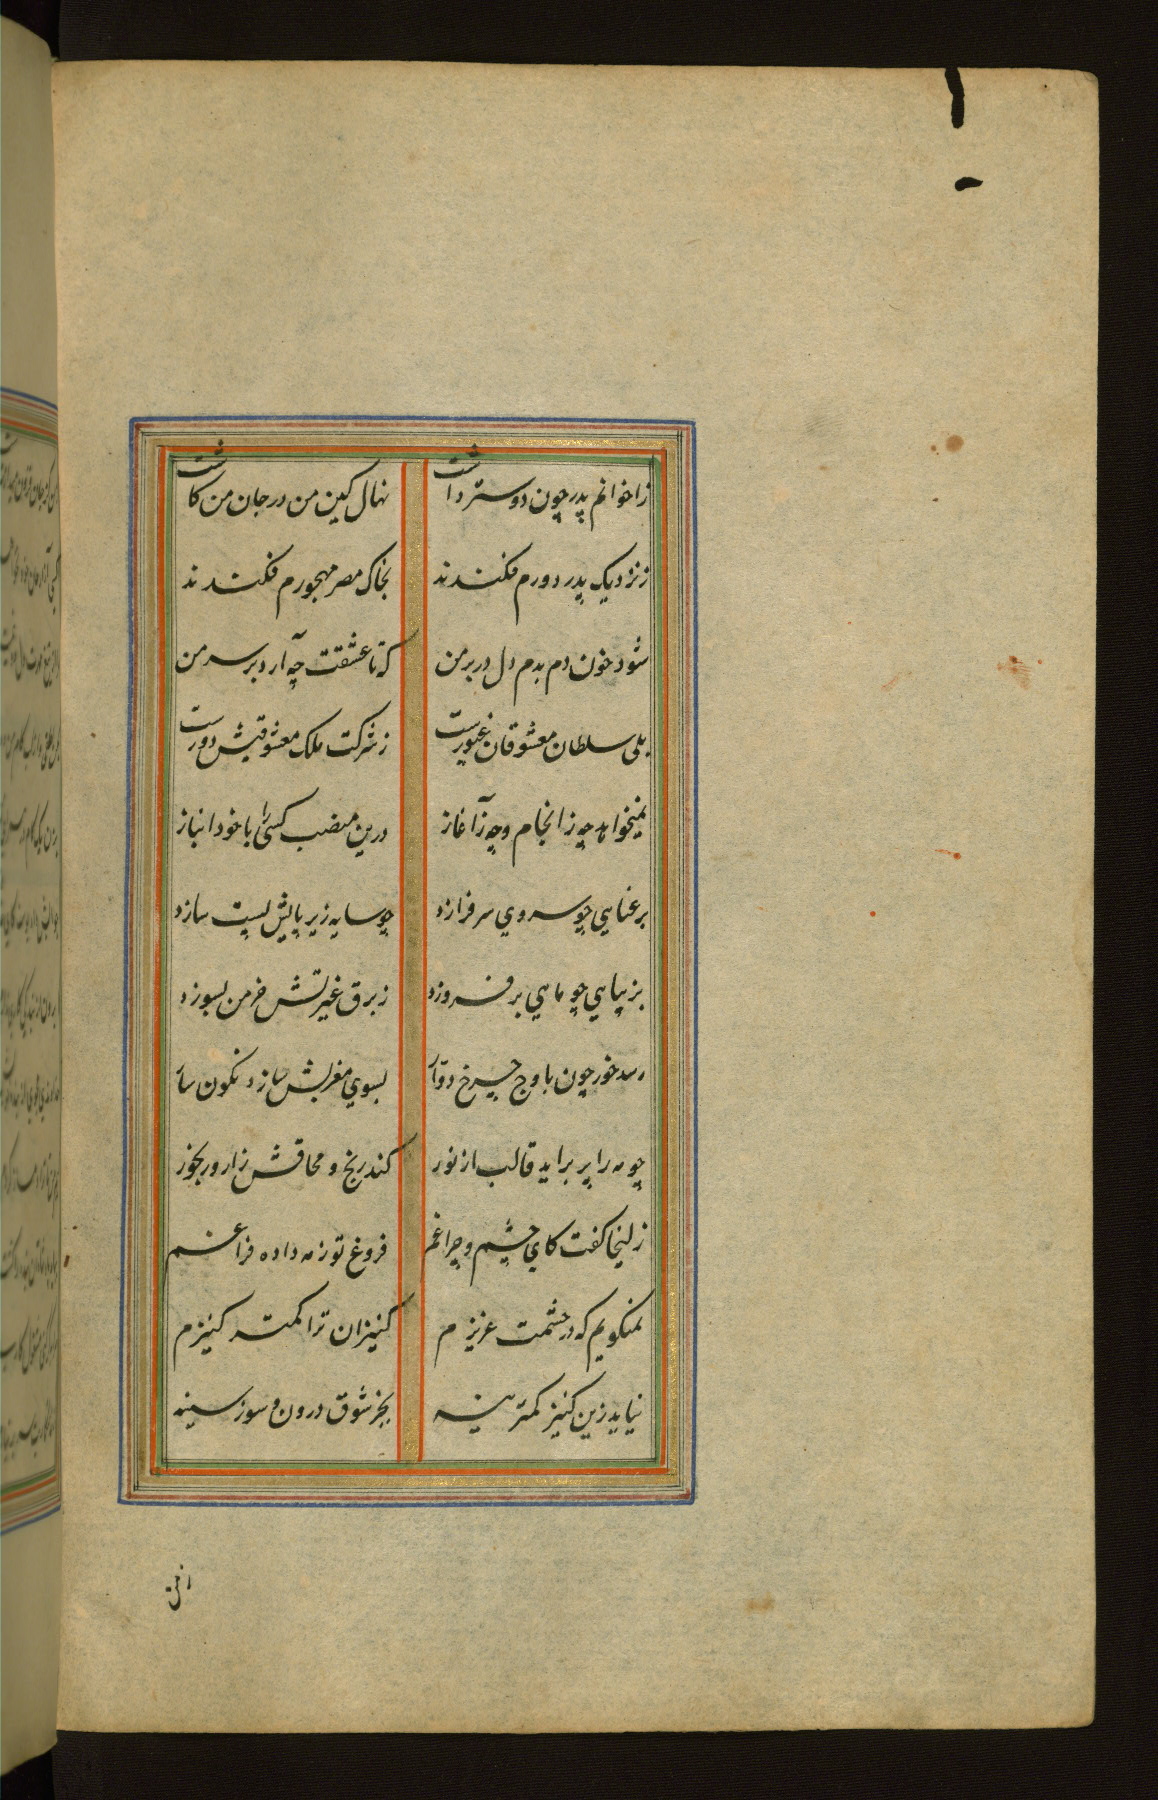 زاخوانم پدر چون دوستر داشت نهال کین من در جان من کاشت
ز نزدیک پدر دورم فکندند بخاک مصر مهجورم فکندند
شود خون دم بدم دل در بر من که تا عشقت چه آرد بر سر من
بلی سلطان معشوقان غیورست ز شرکت ملک معشوقیش دورست
نمیخواهد چه ز انجام و چه ز آغاز درین منصب کسی را با خود انباز
برعنایی چو سروی سر فرازد چو سایه زیر پایش پست سازد
بزیبایی چو ماهی بر فروزد ز برق غیرتش خرمن بسوزد
رسد خور چون باوج چرخ دوّار بسوی مغربش سازد نکون سار
چو مه را پر براید قالب از نور کند رنج و محاقش زار و رنجور
زلیخا کفت کای چشم و چراغم فروغ تو ز مه داده فراغم
نمیکویم که در چشمت عزیزم کنیزان ترا کمتر کنیزم
نیاید زین کنیز کمترینه بجز شوق درون و سوز سینه